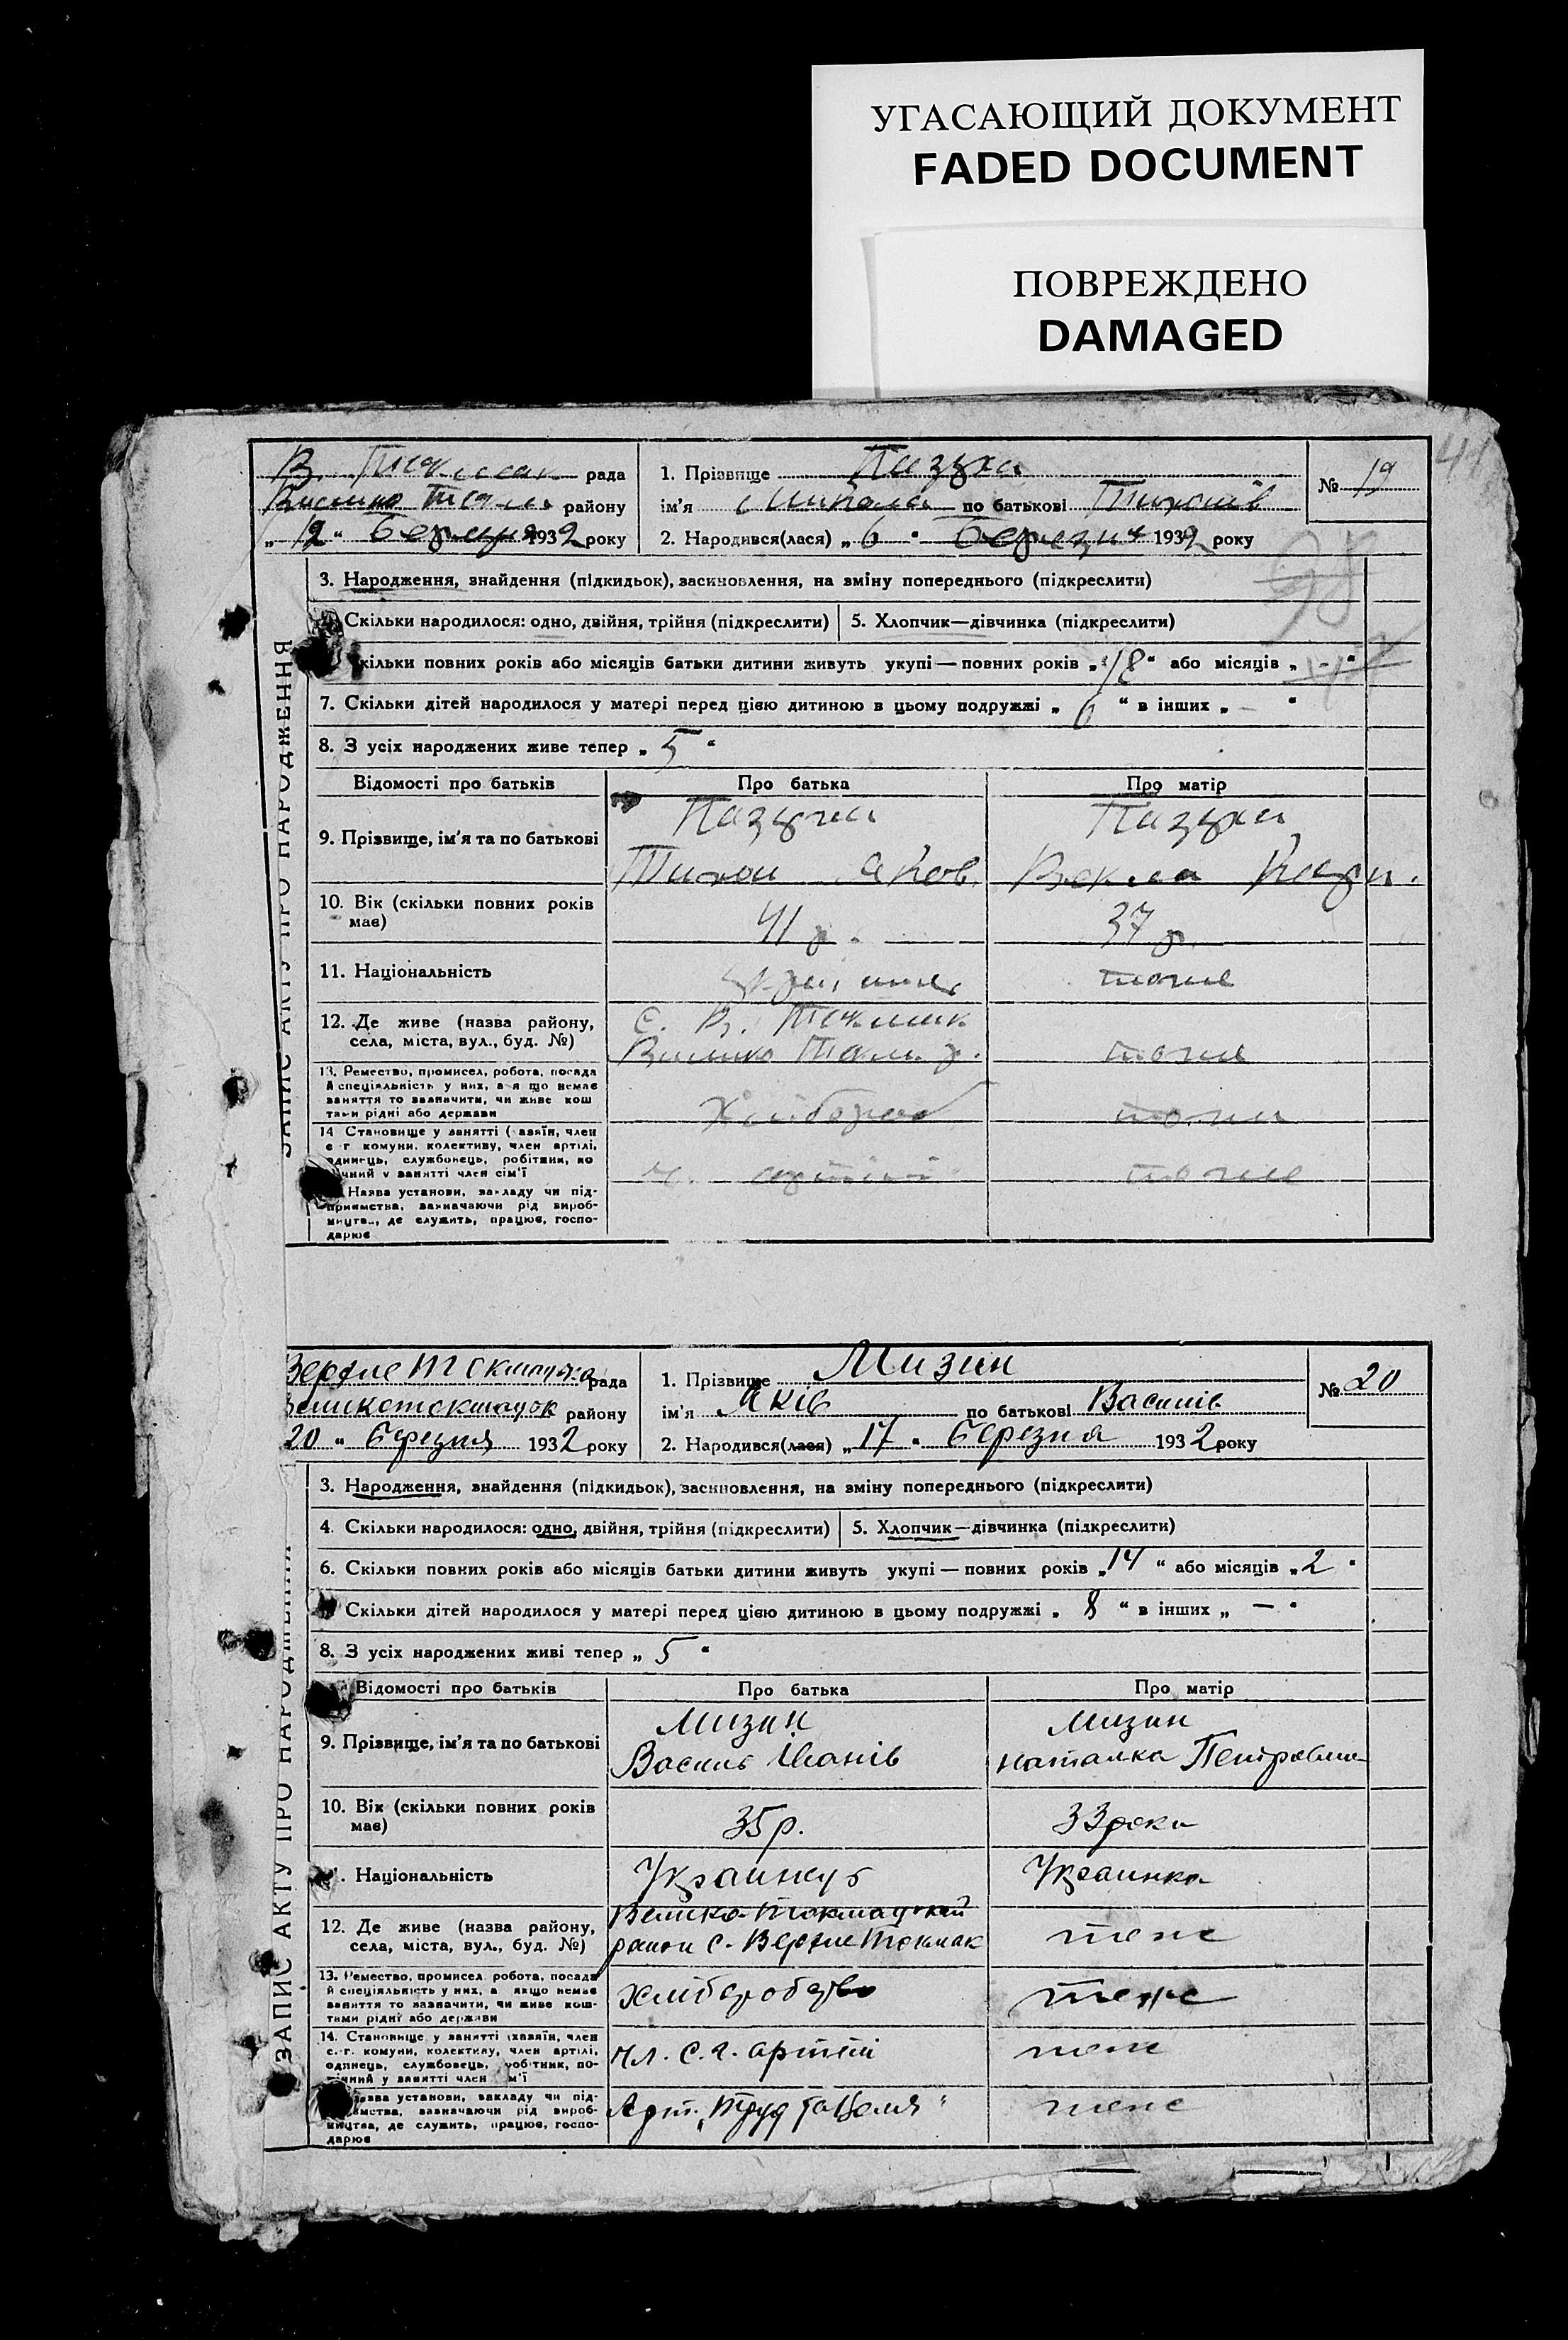 УГАСАЮЩИЙ ДОКУМЕНТ
FADED DOCUMENT
ПОВРЕЖДЕНО
DAMAGED
41
В. Токмак рада
Велико Токм району
„12" Березня 1932 року
1. Прізвище Пазуха
ім'я Микола по батькові Тихонів
2. Народився(лася) „6" Березня 1932 року
№ 19
98
ЗАПИС АКТУ ПРО НАРОДЖЕННЯ
3. Народження, знайдення (підкидьок), засиновлення, на зміну попереднього (підкреслити)
Скільки народилося: одно, двійня, трійня (підкреслити)
5. Хлопчик—дівчинка (підкреслити)
кільки повних років або місяців батьки дитини живуть укупі — повних років „18" або місяців „-"
7. Скільки дітей народилося у матері перед цією дитиною в цьому подружжі „6" в інших „—"
8. З усіх народжених живе тепер „5"
Відомості про батьків
Про батька
Про матір
9. Прізвище, ім'я та по батькові
Пазуха
Тихон Яков.
Пазуха
Векла
10. Вік (скільки повних років
має)
41 р.
37 р.
11. Національність
тоже
12. Де живе (назва району,
села, міста, вул., буд. №)
с. В. Токмак
Велико Токм. р.
тоже
13. Ремество, промисел, робота, посада
й спеціяльність у них, а я що немає
заняття то зазначити, чи живе кош
тами рідні або держави
Хлібороб
тоже
14 Становище у занятті ( азяїн, член
с г. комуни, колективу, член артілі,
одинець, службовець, робітник, по
ічний у занятті член сім'ї
ч. артілі
тоже
Назва установи, закладу чи під-
приємства, зазначаючи рід вироб-
ництва, де служить, працює, госпо-
дарює
Верхне Токмацька рада
Великотокмацьк району
20 " Березня 1932 року
1. Прізвище Мизин
ім'я Яків по батькові Василів
2. Народився(лася) „17" Березня 1932 року
№ 20
ЗАПИС АКТУ ПРО НАРОДЖЕННЯ
3. Народження, знайдення (підкидьок), засиновлення, на зміну попереднього (підкреслити)
4. Скільки народилося: одно, двійня, трійня (підкреслити)
5. Хлопчик—дівчинка (підкреслити)
6. Скільки повних років або місяців батьки дитини живуть укупі — повних років „14" або місяців „2"
Скільки дітей народилося у матері перед цією дитиною в цьому подружжі „8" в інших „—"
8. З усіх народжених живі тепер „5"
Відомості про батьків
Про батька
Про матір
9. Прізвище, ім'я та по батькові
Мизин
Василь Іванів
Мизин
Наталка Петровна
10. Вік (скільки повних років
має)
35 р.
33 роки
. Національність
Украинец
Украинка
12. Де живе (назва району,
села, міста, вул., буд. №)
Велико-Токмацький
район с. Верхне Токмак
теже
13. Ремество, промисел робота, посада
й спеціяльність у них, а якщо немає
заняття то зазначити, чи живе кош-
тами рідні або держави
теже
14. Становище у занятті (хазяїн, член
с.-г. комуни, колективу, член артілі,
одинець, службовець, робітник, по-
ічний у занятті член ім'ї
чл. с. г. артілі
теже
азва установи, закладу чи під-
ємства, зазначаючи рід вироб-
ництва, де служить, працює, госпо-
дарює
Арт. „Труд
теже